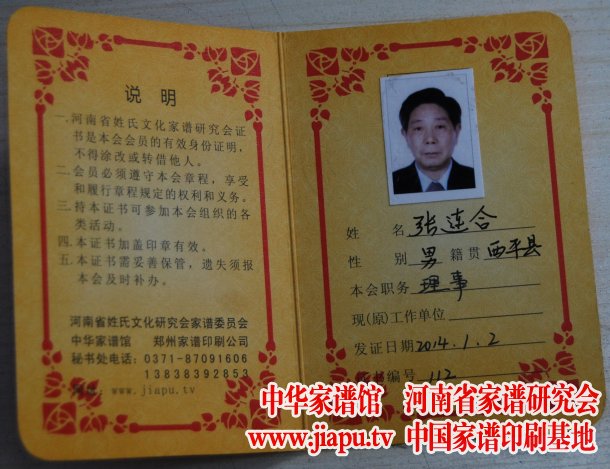 说明
一.河南省姓氏文化家谱研究会证
书是本会会员的有效身份证明，
不得涂改或转借他人。
二.会员必须遵守本会章程，享受
和履行章程规定的权利和义务。
三.持本证书可参加本会组织的各
类活动。
四.本证书加盖印章有效。
五.本证书需妥善保管，遗失须报
本会及时补办。
河南省姓氏文化研究会家谱委员会
中华家谱馆 郑州家谱印刷公司
秘书处电话：0371-87091606
13838392853
网址：www.jiapu.tv
姓名 张连合
性别 男 籍贯 西平县
本会职务 理事
现(原)工作单位
发证日期 2014.1.2
编号 112
中华家谱馆 河南省家谱研究会
www.jiapu.tv 中国家谱印刷基地